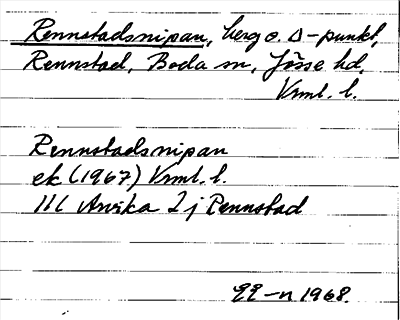 Rennstadsnipan, berg o. Δ-punkt,
Rennstad, Boda sn, Jösse hd,
Vrml. l.
Rennstadsnipan
ek (1967) Vrml. l.
11C Arvika 2 j Rennstad
1968.